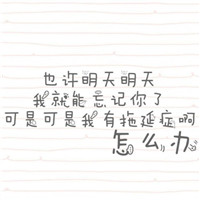 也许明天明天
我就能忘记你了
可是可是我有拖延症啊
怎么办